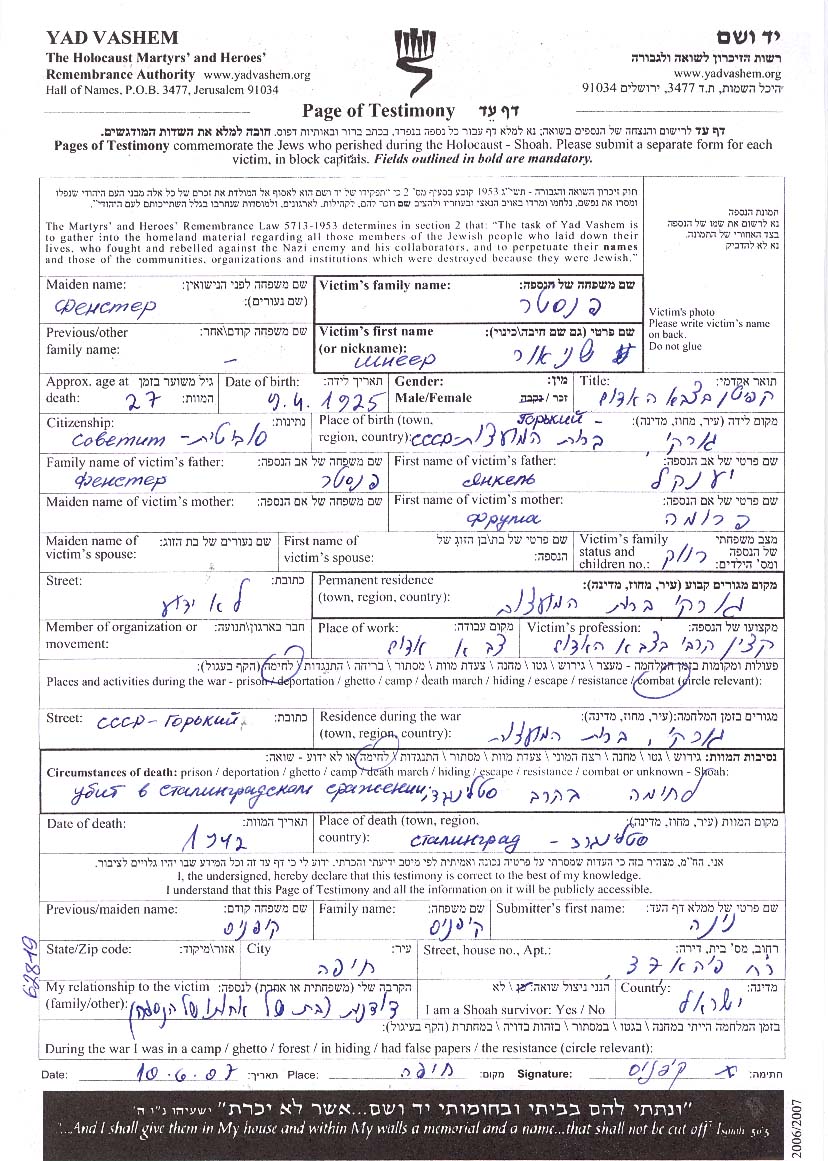 YAD VASHEM
The Holocaust Martyrs' and Heroes'
Remembrance Authority www.yadvashem.org
Hall of Names, P.O.B. 3477, Jerusalem 91034
יד ושם
רשות הזיכרון לשואה ולגבורה
www.yadvashem.org
היכל השמות, ת.ד 3477, ירושלים 91034
Page of Testimony דף עד
דף עד לרישום והנצחה של הנספים בשואה; נא למלא דף עבור כל נספה בנפרד, בכתב ברור ובאותיות דפוס. חובה למלא את השדות המודגשים.
Pages of Testimony commemorate the Jews who perished during the Holocaust - Shoah. Please submit a separate form for each
victim, in block capitals. Fields outlined in bold are mandatory.
חוק זיכרון השואה והגבורה - תשי"ג 1953 קובע בסעיף מס' 2 כי "תפקידו של יד ושם הוא לאסוף אל המולדת את זכרם של כל אלה מבני העם היהודי שנפלו
ומסרו את נפשם, נלחמו ומרדו באויב הנאצי ובעוזריו ולהציב שם וזכר להם, לקהילות, לארגונים, ולמוסדות שנחרבו בגלל השתייכותם לעם היהודי".
The Martyrs' and Heroes' Remembrance Law 5713-1953 determines in section 2 that: "The task of Yad Vashem is
to gather into the homeland material regarding all those members of the Jewish people who laid down their
lives, who fought and rebelled against the Nazi enemy and his collaborators, and to perpetuate their names
and those of the communities, organizations and institutions which were destroyed because they were Jewish."
תמונת הנספה
נא לרשום את שמו של הנספה
בצד האחורי של התמונה.
נא לא להדביק
Victim's photo
Please write victim's name
on back.
Do not glue
Maiden name: שם משפחה לפני הנישואין:
(שם נעורים):
Фенстер
Victim's family name: שם משפחה של הנספה:
פנסטר
Previous/other שם משפחה קודם\אחר:
family name: –
Victim's first name שם פרטי (גם שם חיבה\כינוי):
(or nickname): שניאור
Шнеер
Approx. age at גיל משוער בזמן
death: 27 המוות:
Date of birth: תאריך לידה:
9.4.1925
Gender: מין:
Male/Female זכר / נקבה
Title: תואר אקדמי:
קפטן בצבא האדום
Citizenship: נתינות:
советит - סובייטית
Place of birth (town, מקום לידה (עיר, מחוז, מדינה):
region, country): СССР- ברית המועצות Горький - גורקי
Family name of victim's father: שם משפחה של אב הנספה:
Фенстер פנסטר
First name of victim's father: שם פרטי של אב הנספה:
Янкель יענקל
Maiden name of victim's mother: שם משפחה של אם הנספה:
First name of victim's mother: שם פרטי של אם הנספה:
Фрума פרומה
Maiden name of שם נעורים של בת הזוג:
victim's spouse:
First name of שם פרטי של בת\בן הזוג של
victim's spouse: הנספה:
Victim's family מצב משפחתי
status and של הנספה
children no.: ומס' הילדים:
רווק
Street: כתובת:
לא ידוע
Permanent residence מקום מגורים קבוע (עיר, מחוז, מדינה):
(town, region, country): גורקי ברית המועצות
Member of organization or חבר בארגון\תנועה:
movement:
Place of work: מקום עבודה:
צבא אדום
Victim's profession: מקצועו של הנספה:
קצין קרבי בצבא האדום
פעולות ומקומות בזמן המלחמה - מעצר \ גירוש \ גטו \ מחנה \ צעדת מוות \ מסתור \ בריחה \ התנגדות \ לחימה (הקף בעיגול):
Places and activities during the war - prison / deportation / ghetto / camp / death march / hiding / escape / resistance / combat (circle relevant):
Street: СССР-Горький כתובת:
Residence during the war מגורים בזמן המלחמה:(עיר, מחוז, מדינה):
(town, region, country): גורקי, ברית המועצות
נסיבות המוות: גירוש \ גטו \ מחנה \ רצח המוני \ צעדת מוות \ מסתור \ התנגדות \ לחימה או לא ידוע - שואה:
Circumstances of death: prison / deportation / ghetto / camp / death march / hiding / escape / resistance / combat or unknown - Shoah:
убит в сталинградском сражении; לחימה בקרב סטלינגרד
Date of death: תאריך המוות:
1942
Place of death (town, region, מקום המוות (עיר, מחוז, מדינה):
country): Сталинград - סטלינגרד
אני, הח"מ, מצהיר בזה כי העדות שמסרתי על פרטיה נכונה ואמיתית לפי מיטב ידיעתי והכרתי. ידוע לי כי דף עד זה וכל המידע שבו יהיו גלויים לציבור.
I, the undersigned, hereby declare that this testimony is correct to the best of my knowledge.
I understand that this Page of Testimony and all the information on it will be publicly accessible.
Previous/maiden name: שם משפחה קודם:
קיפניס
Family name: שם משפחה:
קיפניס
Submitter's first name: שם פרטי של ממלא דף העד:
נינה
State/Zip code: אזור\מיקוד:
City עיר:
חיפה
Street, house no., Apt.: רחוב, מס' בית, דירה:
My relationship to the victim הקרבה שלי (משפחתית או אחרת) לנספה:
(family/other): דודנית (בת של אחותו של הנספה)
הנני ניצול שואה: כן \ לא
I am a Shoah survivor: Yes / No
Country: מדינה:
ישראל
בזמן המלחמה הייתי במחנה \ בגטו \ במסתור \ בזהות בדויה \ במחתרת (הקף בעיגול):
During the war I was in a camp / ghetto / forest / in hiding / had false papers / the resistance (circle relevant):
Date: 10.6.07 תאריך: Place: חיפה מקום: Signature: קיפניס חתימה:
"ונתתי להם בביתי ובחומותי יד ושם...אשר לא יכרת" ישעיהו נ"ו ה'
"...And I shall give them in My house and within My walls a memorial and a name...that shall not be cut off" Isaiah 56:5
2006/2007
62819